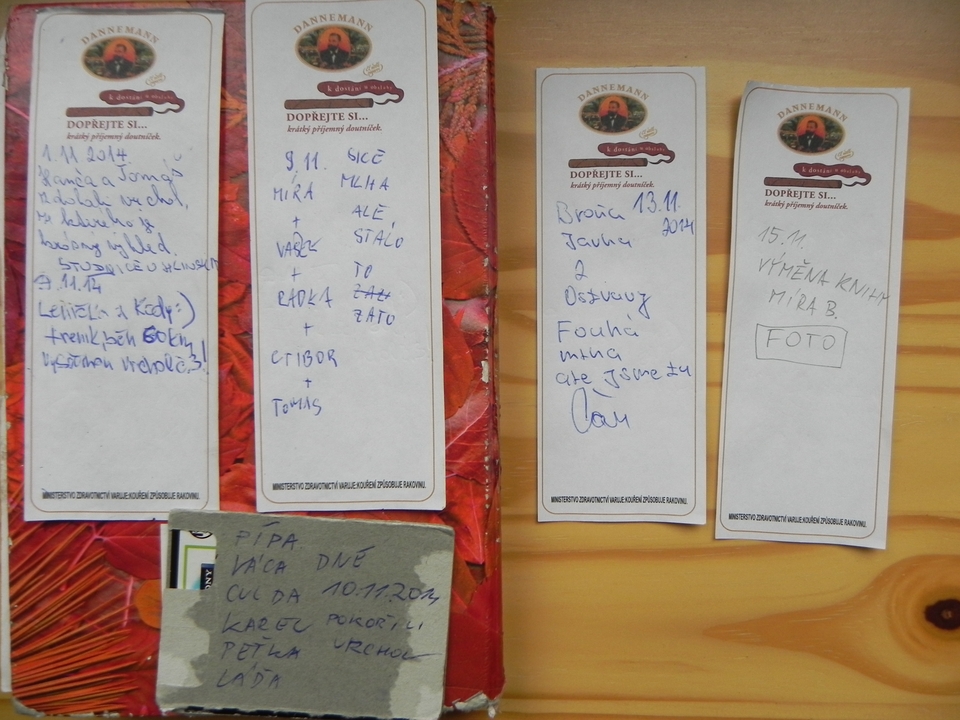 DANNEMANN
k dostání u obsluhy
DOPŘEJTE SI...
krátký příjemný doutníček.
1. 11. 2014
Hanča a Tomáš
zdolali vrchol,
ze kterého je
krásný výhled.
STUDNICE U HLINSKA
9.11.14
Lenička z Kady :)
trenik, běh 60km,
vrchol č.3!
MINISTERSTVO ZDRAVOTNICTVÍ VARUJE:KOUŘENÍ ZPŮSOBUJE RAKOVINU.
DANNEMANN
k dostání u obsluhy
DOPŘEJTE SI...
krátký příjemný doutníček.
9.11. SICE
MÍRA MLHA
+ ALE
VAŠEK STÁLO
+ TO
RADKA ZAZ
+ ZATO
CTIBOR
+
TOMAS
MINISTERSTVO ZDRAVOTNICTVÍ VARUJE:KOUŘENÍ ZPŮSOBUJE RAKOVINU.
PÍPA
VÁCA DNE
CULDA 10.11.2014
KAREL POKOŘILI
PEŤKA VRCHOL
LÁĎA
DANNEMANN
k dostání u obsluhy
DOPŘEJTE SI...
krátký příjemný doutníček.
Broňa 13.11.
Jarka 2014
2
Ostravy
Fouká
mlha
ale jsme tu
Čau
MINISTERSTVO ZDRAVOTNICTVÍ VARUJE:KOUŘENÍ ZPŮSOBUJE RAKOVINU.
DANNEMANN
k dostání u obsluhy
DOPŘEJTE SI...
krátký příjemný doutníček.
15.11.
VÝMĚNA KNIHY
MÍRA B.
FOTO
MINISTERSTVO ZDRAVOTNICTVÍ VARUJE:KOUŘENÍ ZPŮSOBUJE RAKOVINU.